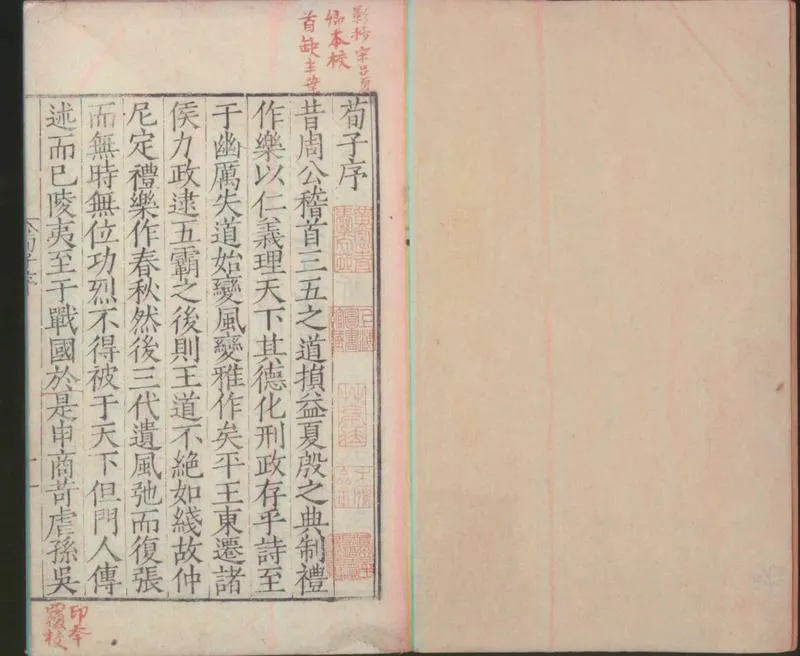 影抄宋呂夏
卿本校
首缺半葉
荀子序
昔周公稽首三五之道損益夏殷之典制禮
作樂以仁義理天下其德化刑政存乎詩至
于幽厲失道始變風變雅作矣平王東遷諸
侯力政逮五霸之後則王道不絕如綫故仲
尼定禮樂作春秋然後三代遺風弛而復張
而無時無位功烈不得被于天下但門人傳
述而已陵夷至于戰國於是申商苛虐孫吳
荀子序
印本
覆校